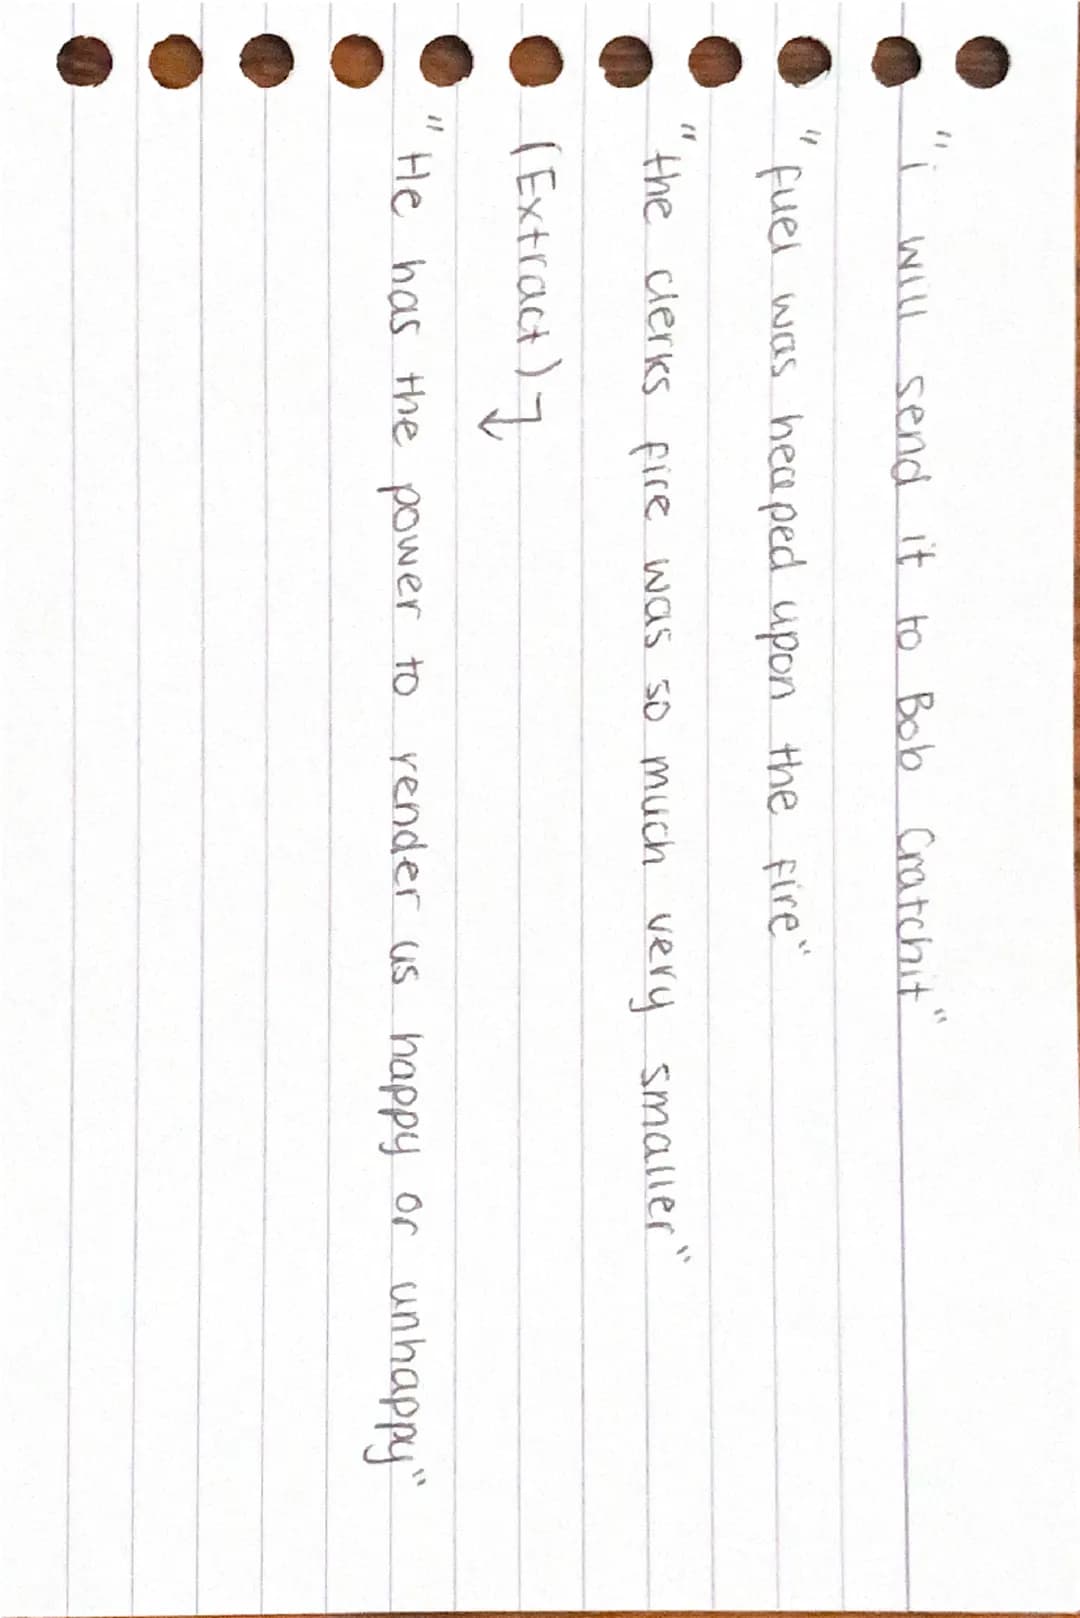 "i will send it to Bob Cratchit"
"fuel was heaped upon the fire"
"the clerks fire was so much very smaller"
(Extract)
"He has the power to render us happy or unhappy"